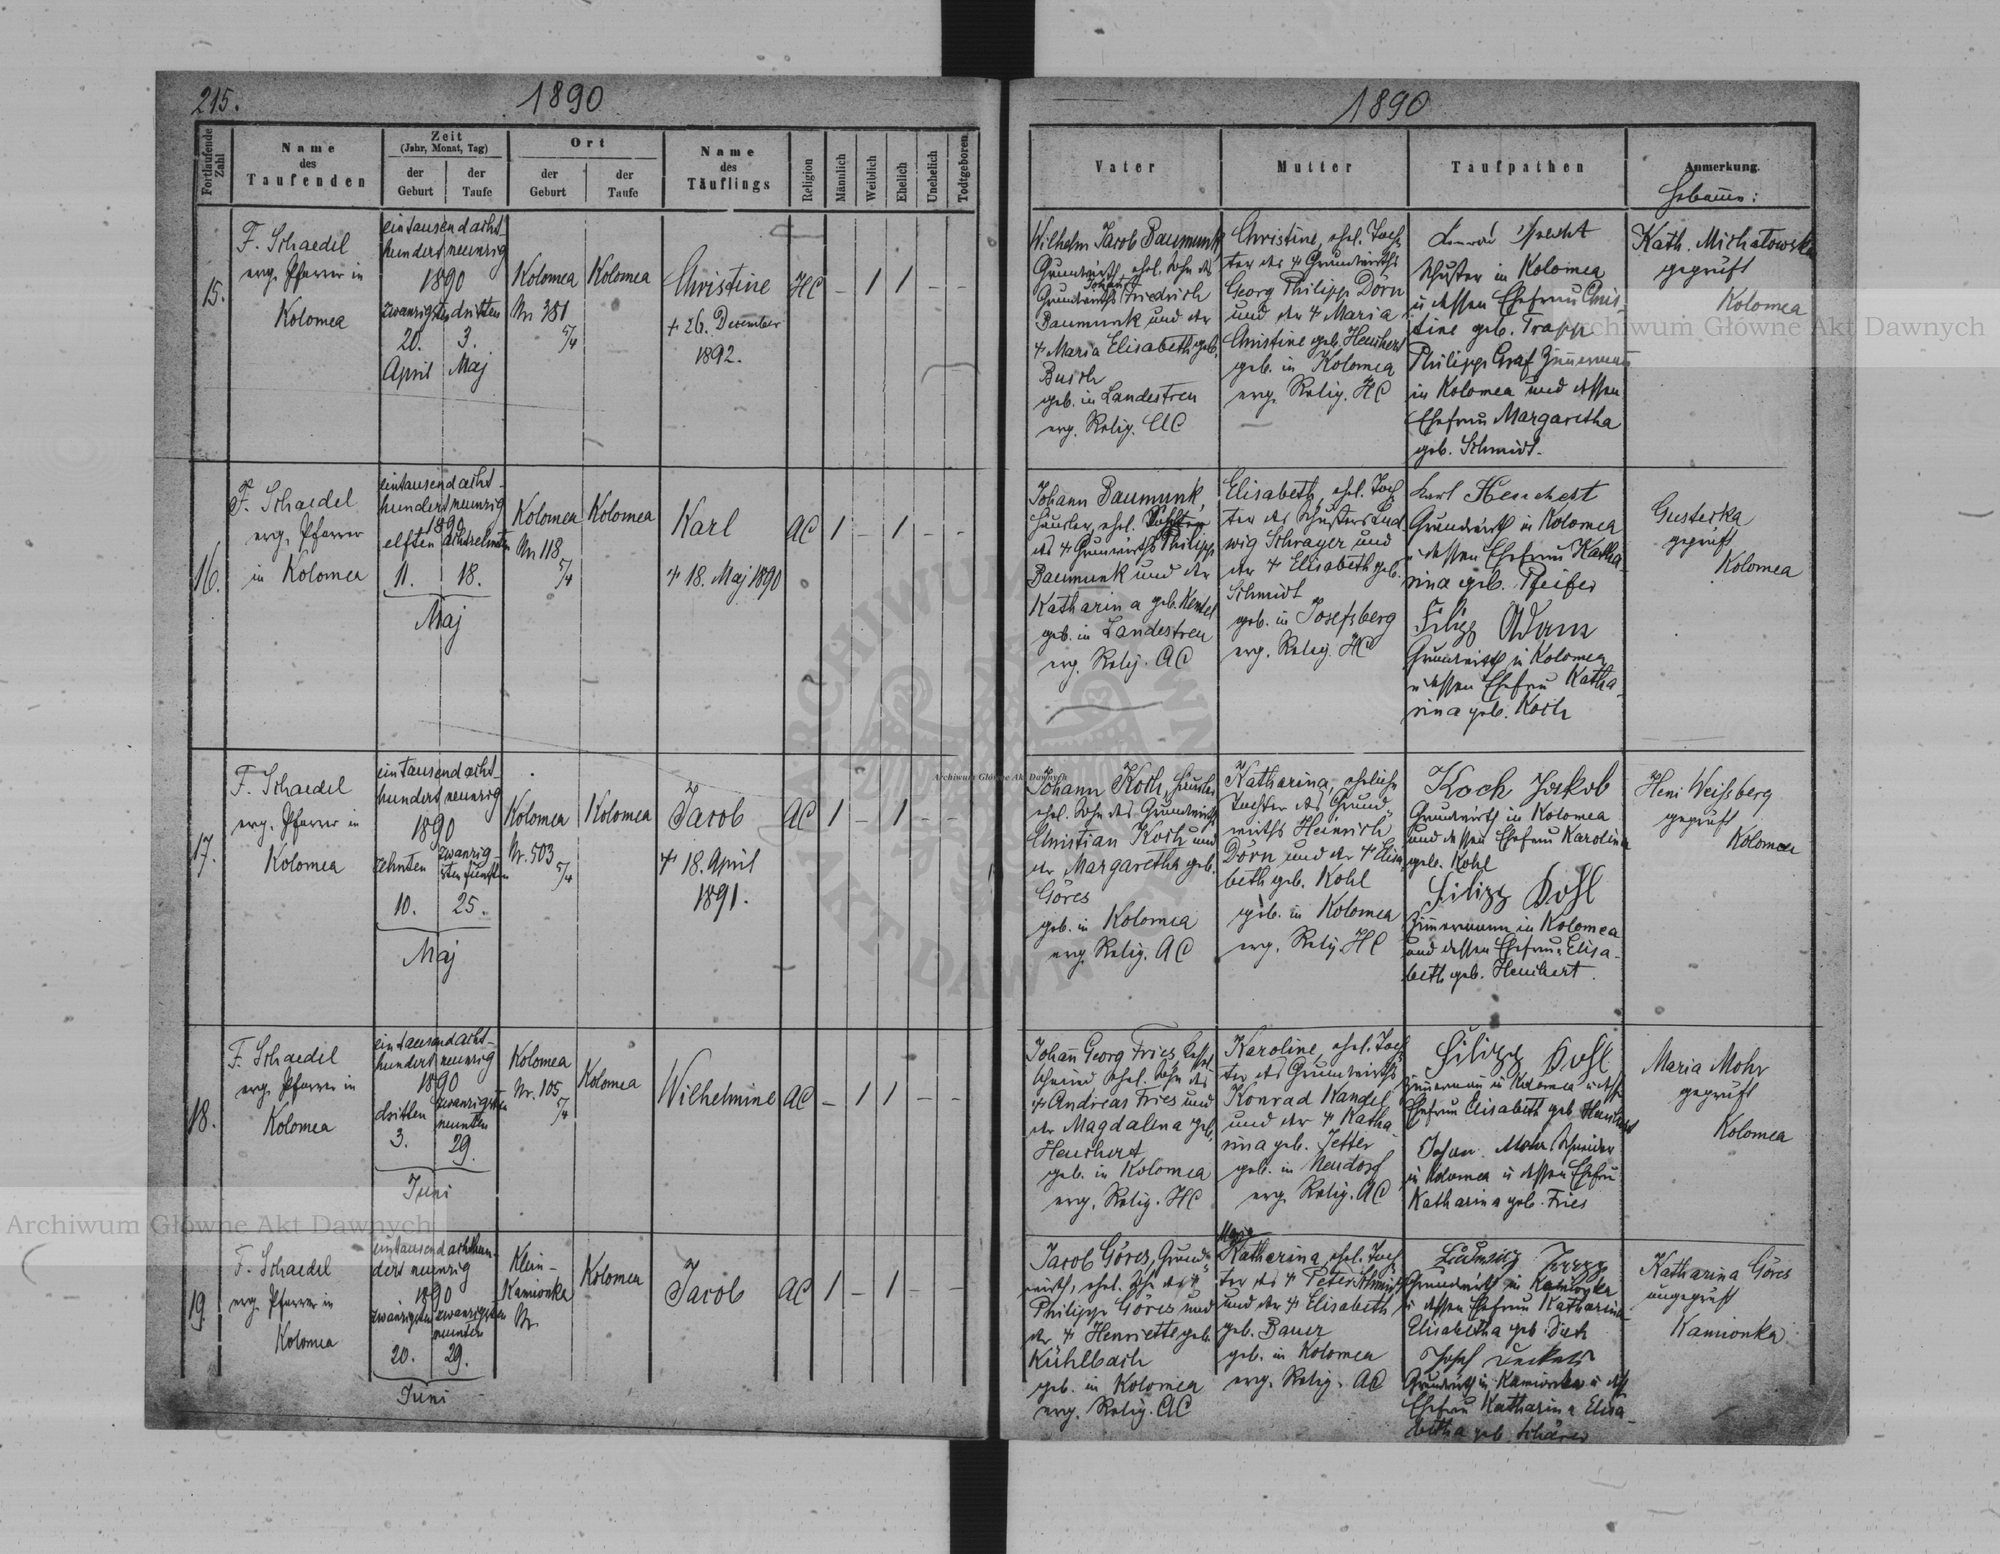 215.
1890
1890
Fortlaufende Zahl
Name
des
Taufenden
Zeit
(Jahr, Monat, Tag)
der
Geburt
der
Taufe
Ort
der
Geburt
der
Taufe
Name
des
Täuflings
Religion
Männlich
Weiblich
Ehelich
Unehelich
Todtgeboren
Vater
Mutter
Taufpathen
Anmerkung.
15.
F. Schaedel
evg. Pfarrer in
Kolomea
eintausend acht-
hundert neunzig
1890
zwanzigsten dritten
20. 3.
April Maj
Kolomea
Nr 381
5/4
Kolomea
Christine
+ 26. December
1892.
HC
– 1 1 – –
Wilhelm Jacob Baumunk
Grundwirth, ehel. Sohn des
Johann
Grundwirths Friedrich
Baumunk und der
+ Maria Elisabeth geb.
Busch
geb. in Landestreu
evg. Relig. HC
Christine, ehel. Toch-
ter des + Grundwirths
Georg Philipp Dörn
und der + Maria
Christine geb. Heuchert
geb. in Kolomea
evg. Relig. HC
Schuster in Kolomea
u dessen Ehefrau Chris-
tine geb. Trapp
Philipp Graf Zimmermann
in Kolomea und dessen
Ehefrau Margaretha
geb. Schmidt.
Kath. Michalowska
geprüft
Kolomea
16.
F. Schaedel
evg. Pfarrer
in Kolomea
eintausend acht-
hundert neunzig
1890
elften achtzehnten
11. 18.
Maj
Kolomea
Nr 118
5/4
Kolomea
Karl
+ 18. Maj 1890
AC
1 – 1 – –
Johann Baumunk,
Häusler, ehel. Sohn
des + Grundwirths Philipp
Baumunk und der
Katharina geb. Kentel
geb. in Landestreu
evg. Relig. AC
Elisabeth, ehel. Toch-
ter des Schusters Lud
wig Schrayer und
der + Elisabeth geb.
Schmidt
geb. in Josefsberg
evg. Relig. HC
Karl Heuchert
Grundwirth in Kolomea
u dessen Ehefrau Katha-
rina geb. Pfeifer
Filipp Adam
Grundwirth in Kolomea
u dessen Ehefrau Katha-
rina geb. Koch
Gusterka
geprüft
Kolomea
17.
F. Schaedel
evg. Pfarrer in
Kolomea
eintausend acht-
hundert neunzig
1890
zehnten zwanzig-
sten fünften
10. 25.
Maj
Kolomea
Nr. 503
5/4
Kolomea
Jacob
+ 18. April
1891.
AC
1 – 1 – –
Johann Koch, Häusler
ehel. Sohn des Grundwirths
Christian Koch und
der Margaretha geb.
Göres
geb. in Kolomea
evg. Relig. AC
Katharina, eheliche
Tochter des Grund-
wirths Heinrich
Dörn und der + Elisa
beth geb. Kohl
geb. in Kolomea
evg. Relig. HC
Koch Jakob
Grundwirth in Kolomea
und dessen Ehefrau Karolina
geb. Kohl
Filipp Kohl
Zimmermann in Kolomea
und dessen Ehefrau Elisa-
beth geb. Heuchert.
Heni Weißberg
geprüft
Kolomea
18.
F. Schaedel
evg. Pfarrer in
Kolomea
eintausend acht-
hundert neunzig
1890
dritten zwanzigsten
neunten
3. 29.
Juni
Kolomea
Nr. 105
5/4
Kolomea
Wilhelmine
AC
– 1 1 – –
Johann Georg Fries, Kessel-
schmied, ehel. Sohn des
+ Andreas Fries und
der Magdalina geb.
Heuchert
geb. in Kolomea
evg. Relig. HC
Karoline, ehel. Toch-
ter des Grundwirths
Konrad Mandel
und der + Katha-
rina geb. Jetter
geb. in Neudorf
evg. Relig. AC
Filipp Kohl
Zimmermann in Kolomea u dess
Ehefrau Elisabeth geb. Heuchert
Johan Mohr Schneider
in Kolomea u dessen Ehefrau
Katharina geb. Fries
Maria Mohr
geprüft
Kolomea
19.
F. Schaedel
evg. Pfarrer in
Kolomea
eintausend achthun-
dert neunzig
1890
zwanzigsten zwanzigsten
neunten
20. 29.
Juni
Klein-
Kamionka
Nr.
Kolomea
Jacob
AC
1 – 1 – –
Jacob Göres, Grund-
wirth, ehel. Sohn des +
Philipp Göres und
der + Henriette geb.
Kühlbach
geb. in Kolomea
evg. Relig. AC
Maria
Katharina, ehel. Toch-
ter des + Peter Schmidt
und der + Elisabeth
geb. Bauer
geb. in Kolomea
evg. Relig. AC
Grundwirth in Kamionka
u dessen Ehefrau Katharina
Elisabetha geb.
Josef
Grundwirth in Kamionka u dess
Ehefrau Katharina Elisa-
betha geb.
Katharina Göres
ungeprüft
Kamionka
Archiwum Główne Akt Dawnych
Archiwum Główne Akt Dawnych
Archiwum Główne Akt Dawnych